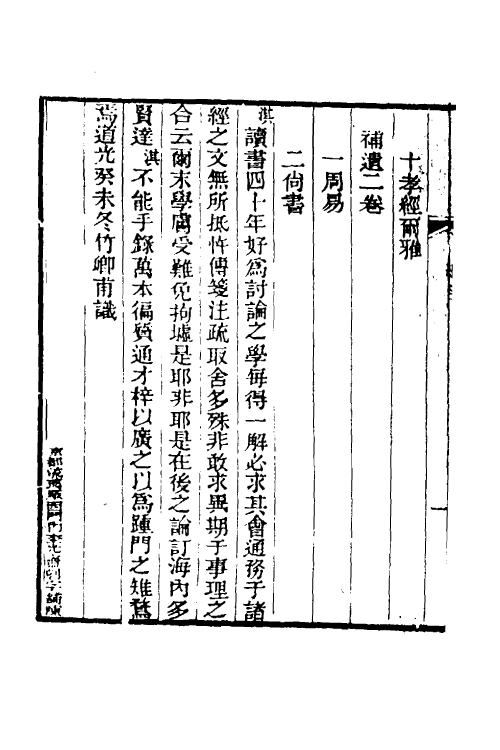 十孝經爾雅
補遺二卷
一周易
二尙書
淇讀書四十年好爲討論之學每得一解必求其會通務于諸
經之文無所抵忤傳箋注疏取舍多殊非敢求異期于事理之
合云爾末學膚受難免拘墟是耶非耶是在後之論訂海內多
賢達淇不能手錄萬本徧質通才梓以廣之以爲踵門之雉鶩
焉道光癸未冬竹鄉甫識
京都琉璃厰西門內